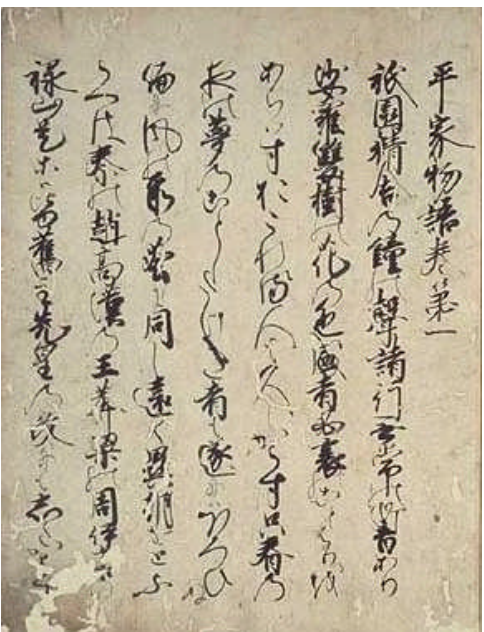 平家物語巻第一
祇園精舎の鐘の聲諸行無常の響あり
娑羅雙樹の花の色盛者必衰のことはりを
あらはすおこれる人も久しからす只春の
夜の夢のことしたけき者も遂にはほろひぬ
偏に風の前の塵に同し遠く異朝をとふ
らへは秦の趙高漢の王莽梁の周伊
禄山是等は皆舊主先皇の政にもした